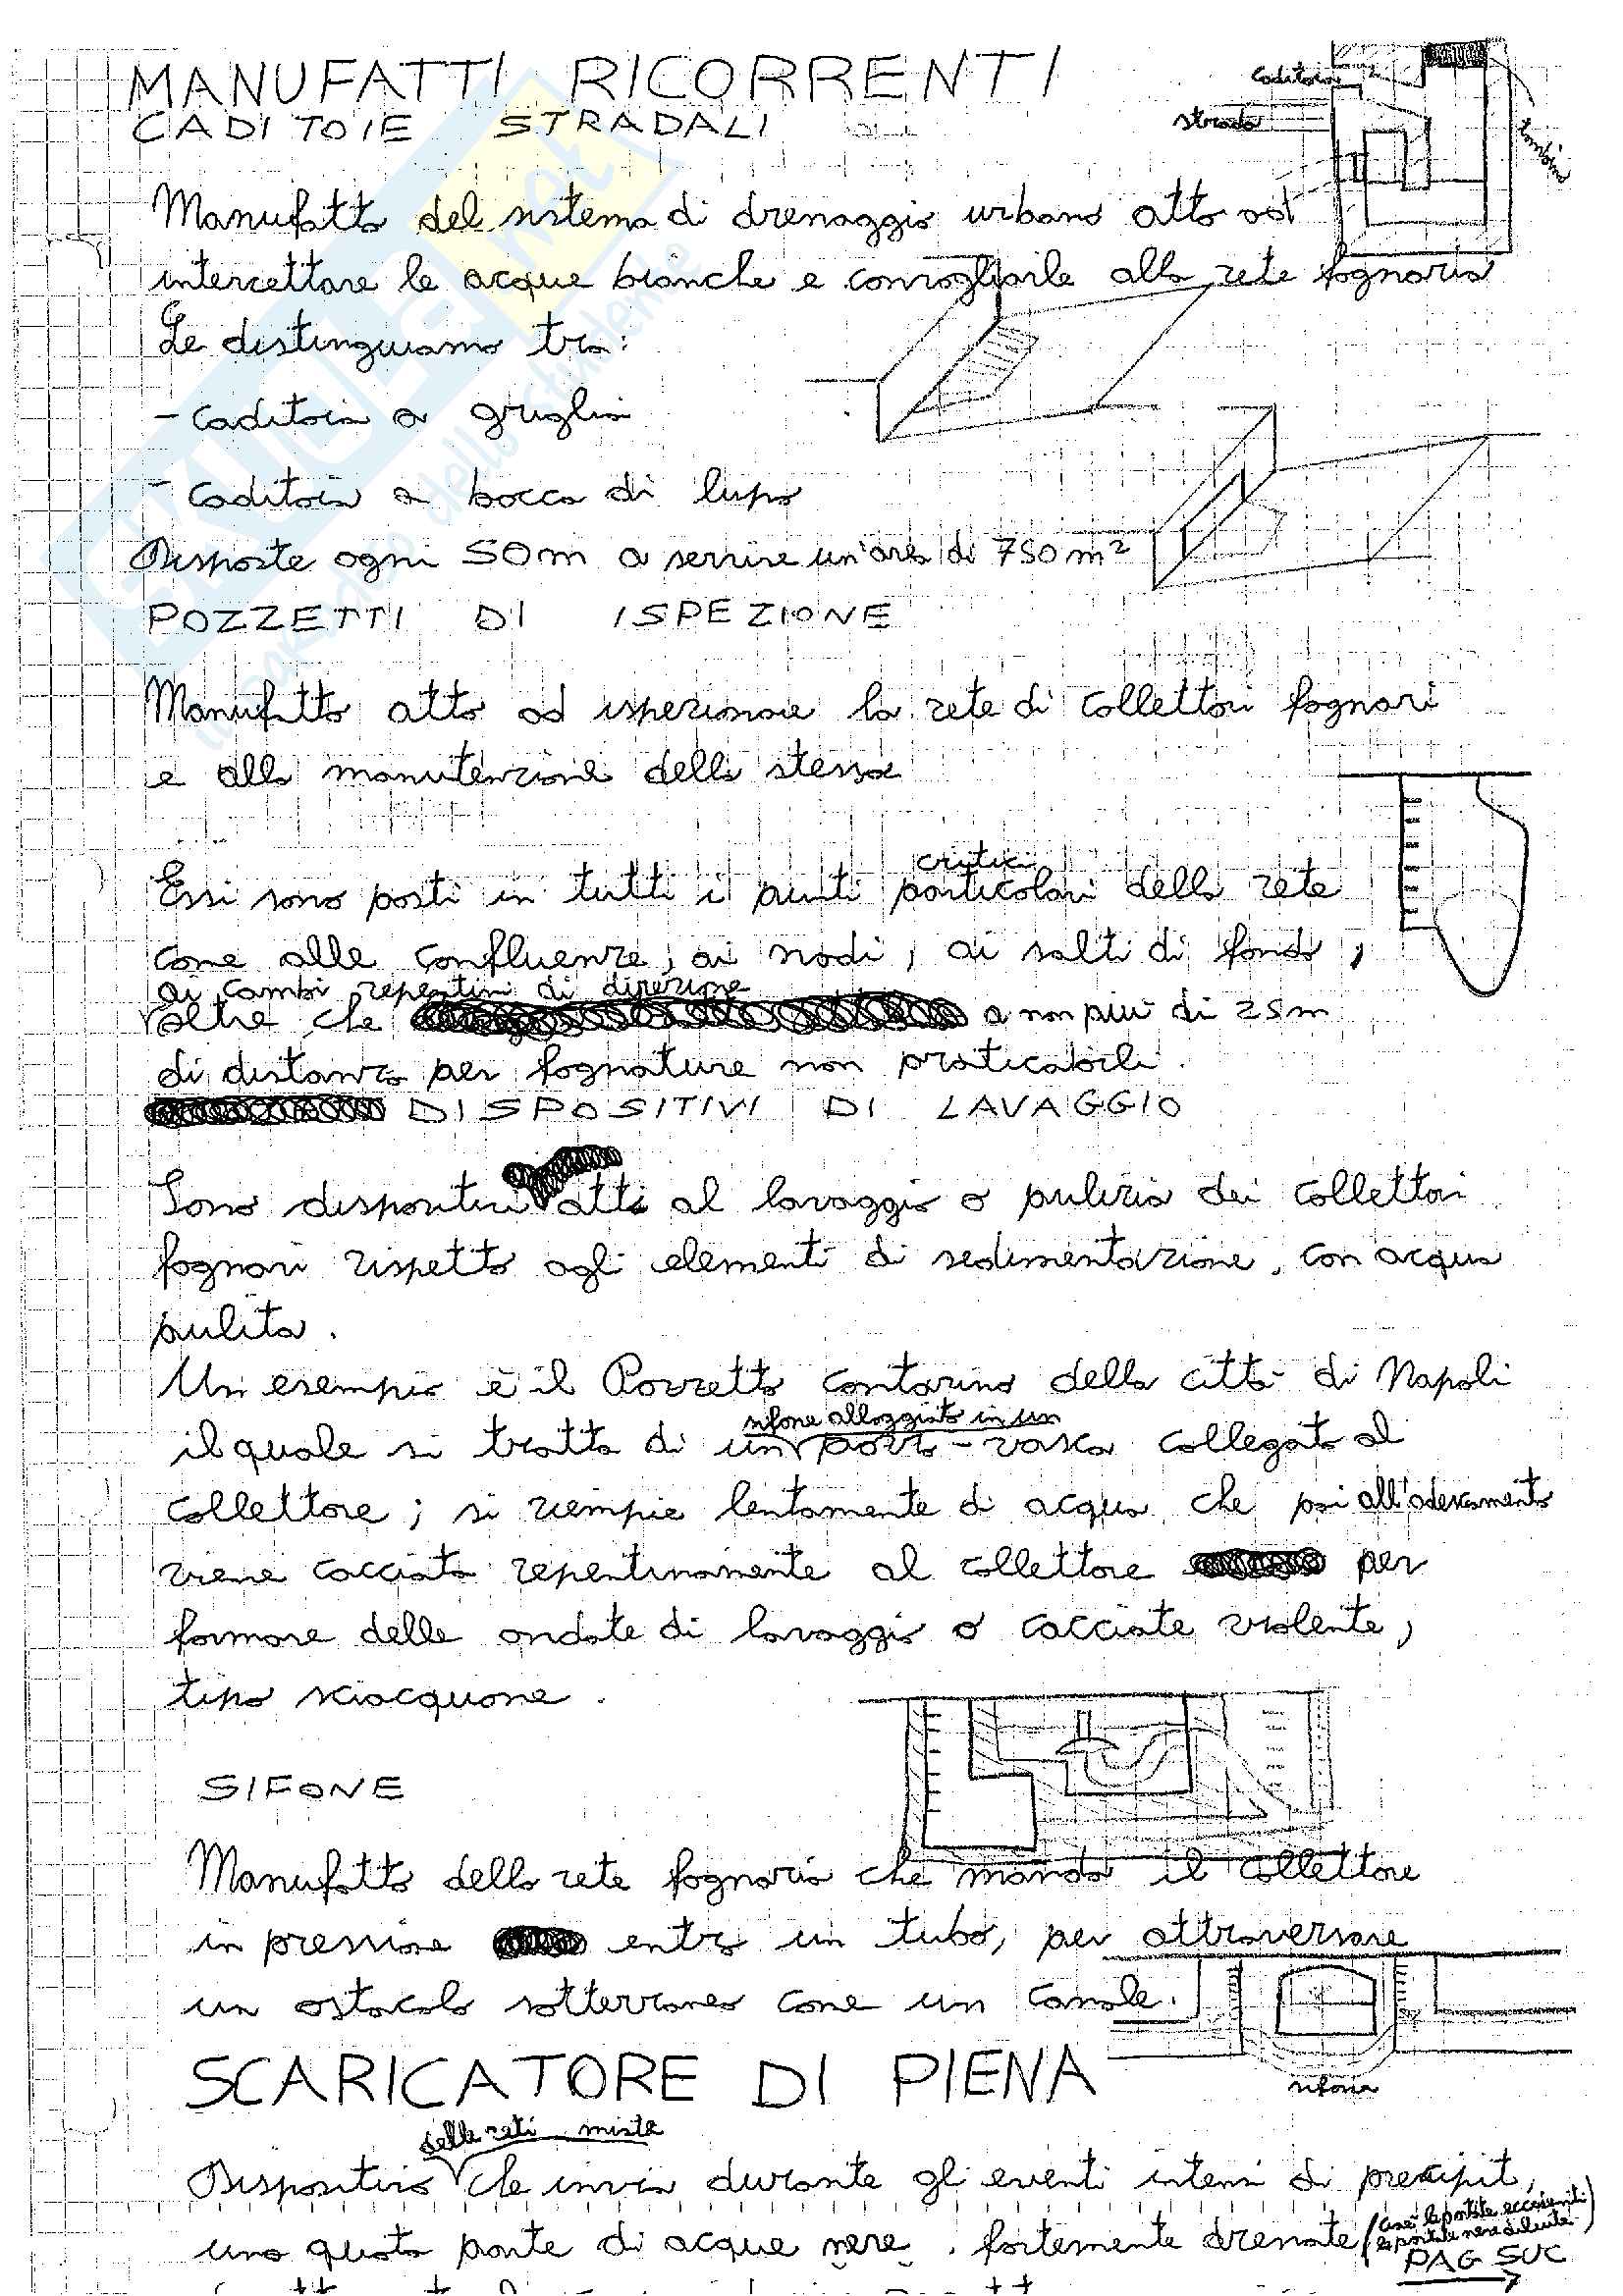 MANUFATTI RICORRENTI
CADITOIE STRADALI
Caditoia
strada
Manufatto del sistema di drenaggio urbano atto ad
intercettare le acque bianche e convogliarle alla rete fognaria
Le distinguiamo tra:
- Caditoia a griglia
- Caditoia a bocca di lupo
Disposte ogni 50m a servire un'area di 750 m²
POZZETTI DI ISPEZIONE
Manufatto atto ad ispezionare la rete di collettori fognari
e alla manutenzione della stessa
critici
Essi sono posti in tutti i punti particolari della rete
come alle confluenze, ai nodi, ai salti di fondo,
ai cambi repentini di direzione
oltre che a non più di 25m
di distanza per fognature non praticabili.
DISPOSITIVI DI LAVAGGIO
Sono dispositivi atti al lavaggio o pulizia dei collettori
fognari rispetto agli elementi di sedimentazione, con acqua
pulita.
Un esempio è il Pozzetto contarino della città di Napoli
sifone alloggiato in un
il quale si tratta di un pozzo-vasca collegato al
collettore; si riempie lentamente di acqua che poi all'adescamento
viene cacciata repentinamente al collettore per
formare delle ondate di lavaggio o cacciate violente,
tipo sciacquone.
SIFONE
Manufatto della rete fognaria che manda il collettore
in pressione entro un tubo, per attraversare
un ostacolo sotterraneo come un canale.
sifone
SCARICATORE DI PIENA
delle reti miste
Dispositivo che invia durante gli eventi intensi di precipit,
una quota parte di acque nere, fortemente drenate
(cioè le portate eccedenti
le portate nere diluite)
PAG SUC